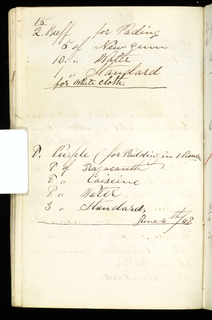 15
2 Buff for Pading
5 of New gum
10 " Water
1 " Standard
for white cloth.
P. Purple (for Padding in 1 Roller
8 of Tragacanth
8 " Water
3 " Standard,
June 4th